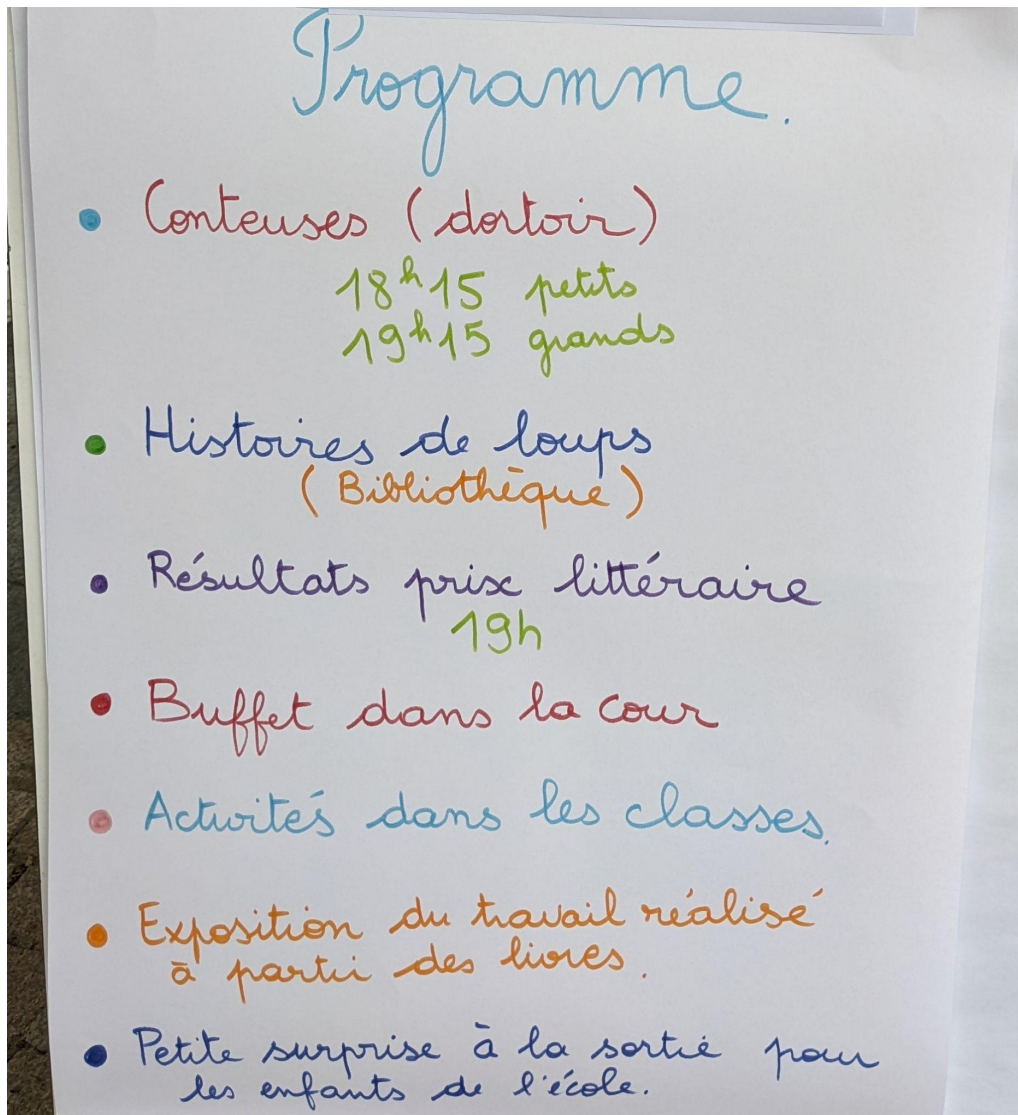 Programme.
• Conteuses (dortoir)
18h15 petits
19h15 grands
• Histoires de loups
(Bibliothèque)
• Résultats prix littéraire
19h
• Buffet dans la cour
• Activités dans les classes.
• Exposition du travail réalisé
à partir des livres.
• Petite surprise à la sortie pour
les enfants de l'école.